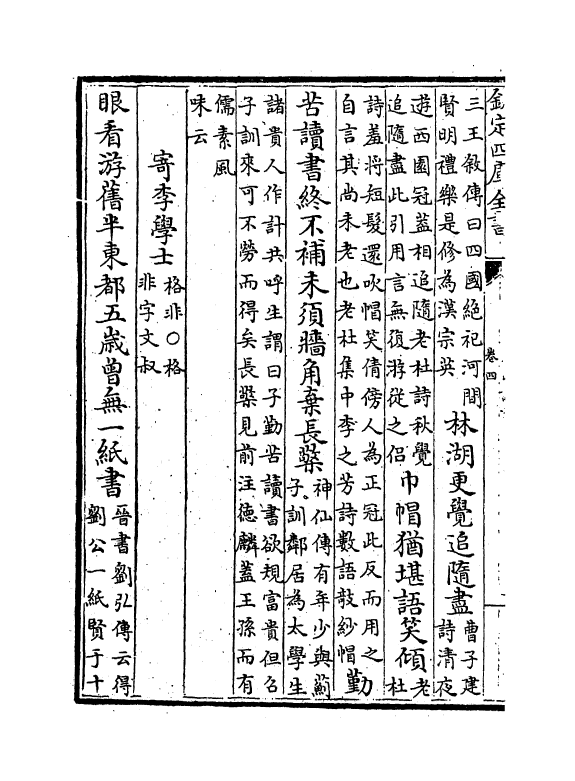 欽定四庫全書
卷四
三王敘傳曰四國絶祀河間
賢明禮樂是修為漢宗英
林湖更覺追隨盡
曹子建
詩清夜
遊西園冠蓋相追隨老杜詩秋覺
追隨盡此引用言無復游從之侣
巾帽猶堪語笑傾
老
杜
詩羞將短髮還吹帽笑倩傍人為正冠此反而用之
自言其尚未老也老杜集中李之芳詩數語敧紗帽
勤
苦讀書終不補未須牆角棄長檠
神仙傳有年少與薊
子訓鄰居為太學生
諸貴人作計共呼生謂曰子勤苦讀書欲規富貴但召
子訓來可不勞而得矣長檠見前注德麟蓋王孫而有
儒素風
味云
寄李學士
格非〇格
非字文叔
眼看游舊半東都五歲曾無一紙書
晉書劉弘傳云得
劉公一紙賢于十